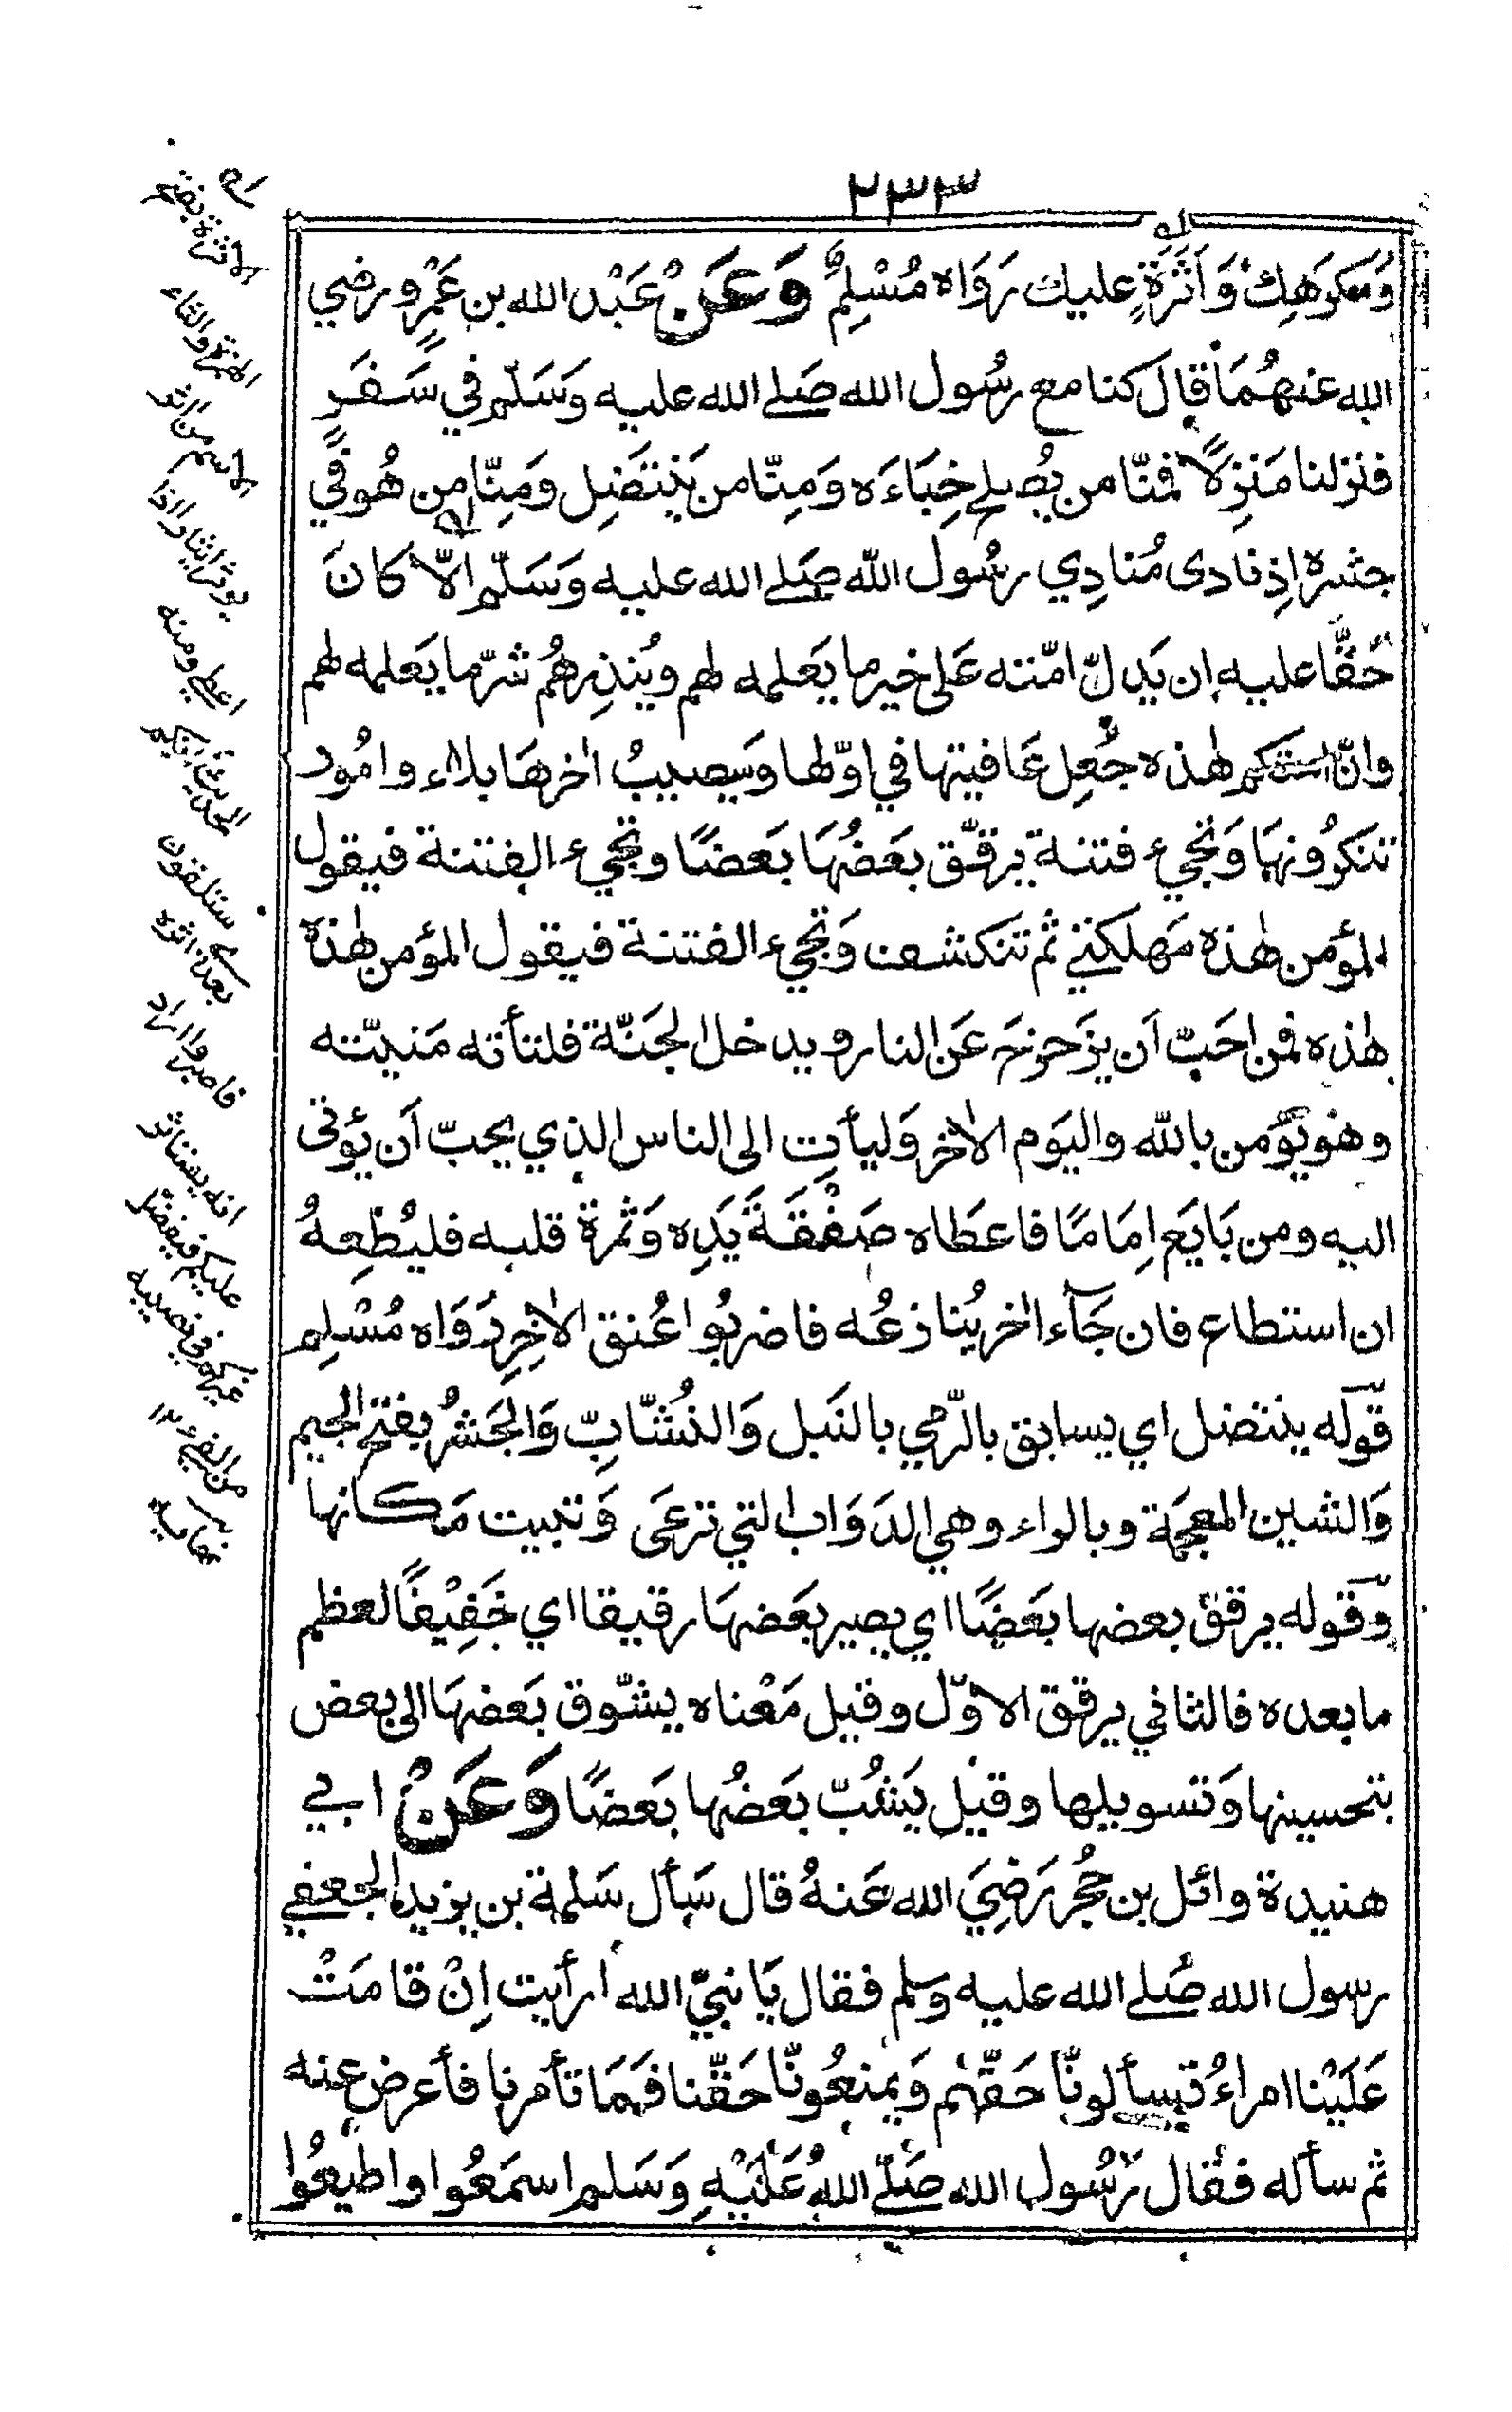 ٢٣٣
وَمَكرَهِكَ وَاَثَرَةٍ عليك رَوَاه مُسْلِمٌ وَعَنْ عَبْد الله بن عَمْرٍو رضي
الله عنهُمَا قال كنا مع رسُول الله صَلے الله عليه وَسَلّم في سَفَرٍ
فنزلنا مَنزِلًا فمنّا من يُصلح خِبَاءَه وَمِنّا من يَنتَضِل وَمِنّا من هُو في
جشره اِذ نادى مُنادِي رسُول اللّه صَلے الله عليه وَسَلّم الّا كانَ
حَقًّا عليه ان يَدلّ امّته عَلى خير ما يَعلمه لهم ويُنذِرهُم شرّما يَعلمه لهم
وانّ امتكم هٰذه جُعِل عَافيتها في اوّلها وَسَيصيبُ اٰخرهَا بلاء وامُور
تنكرُونهَا وَتجيء فتنة يرقّق بَعَضُهَا بَعضًا وتجيء الفتنة فيقول
المؤمن هٰذه مَهلكتي ثم تنكشف وَتجيء الفتنة فيقول المؤمن هٰذه
هٰذه فمن احَبّ اَن يزَحزحَ عَن النار ويدخل الجَنّة فلتأته مَنيّته
وهو يؤمن باللّه واليَوم الاٰخر وَليأتِ الى الناس الذي يحبّ اَن يُؤتى
اليه ومن بَايَع اِمَامًا فاعطَاه صَفْقَةَ يَدِه وَثمرة قلبه فليُطِعهُ
ان استطاع فان جَآء اٰخر يُنازعُه فاضربُوا عُنق الاٰخِر رَوَاه مُسْلِم
قوله ينتضل اي يسابق بالرّمي بالنَبل وَالنُشّابِ وَالجَشرُ بفتح الجيم
وَالشين المعجمَة وبالراء وهي الدَوَاب التي ترعَى وَتبيت مَكانها
وقوله يرقق بعضها بعَضًا اي يصير بعَضهَا رقيقا اي خَفِيْفًا لعظم
ما بعده فالثاني يرقق الاوّل وقيل مَعْناه يشّوق بَعَضهَا الى بعض
بتحسينها وَتسويلها وقيْل يَشُبّ بَعَضُها بَعَضًا وَعَنْ ابي
هنيدة وائل بن حُجر رَضِيَ الله عَنهُ قال سَأل سَلمة بن يزيد الجعفي
رسول الله صَلے الله عليه وسلم فقال يَا نبيّ الله ارأيت اِنْ قامَتْ
عَلَيْنا امراءُ تسألونّا حَقّهُم وَيمنعُونّا حَقّنا فَمَا تأمرنا فأعرض عنه
ثم سأله فقال رَسُول الله صَلّے اللهُ عَلَيْهِ وَسَلم اسمَعُوا واطيعُوا
له
الاثرة بفتح
الهمزة والثاء
الاسم من اثر
يوثر ايثارا اذا
اعطى ومنه
الحديث انكم
ستلقون
بعدي اثره
فاصبروا اراد
انه يستاثر
عليكم فيفضل
غيركم في نصيبه
من الفيء ١٢
نهاية